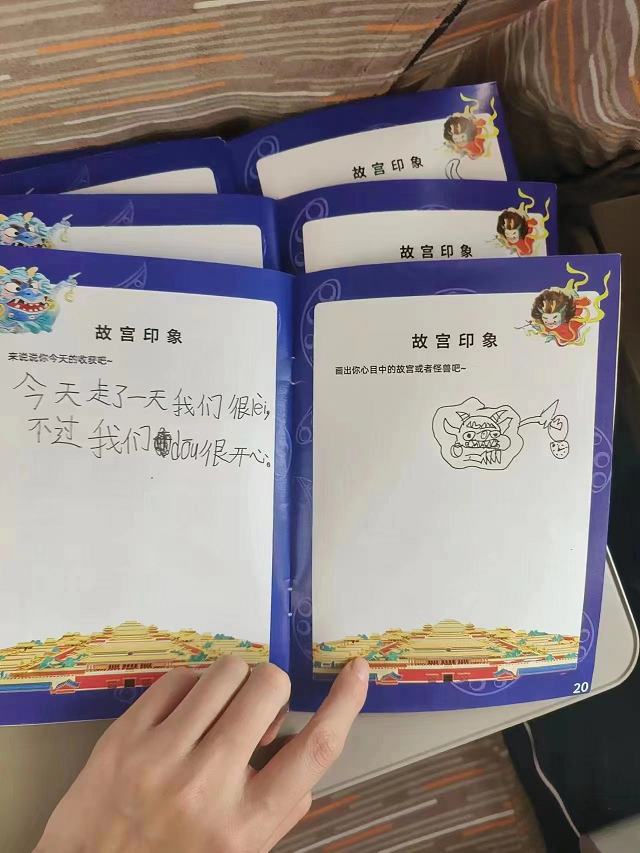 故宫印象
故宫印象
故宫印象
来说说你今天的收获吧~
今天走了一天我们很lèi,
不过我们dōu很开心。
故宫印象
画出你心目中的故宫或者怪兽吧~
20